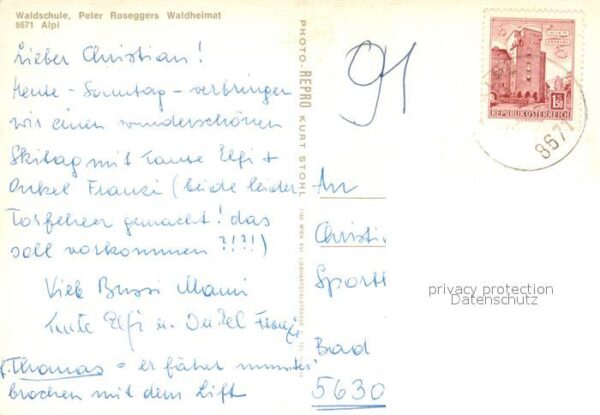 Waldschule, Peter Roseggers Waldheimat
8671 Alpl
Lieber Christian!
Heute - Sonntag - verbringen
wir einen wunderschönen
Skitag mit Tante Elfi +
Onkel Franzi (beide leider
Torfehler gemacht! das
soll vorkommen ?!?!)
Viele Bussi Mami
Tante Elfi u. Onkel Franzi
Thomas = er fährt munter
brochen mit dem Lift
PHOTO-REPRO KURT STOHL
91
1.50
REPUBLIK ÖSTERREICH
8671
An
Christi
Sport
Bad
5630
privacy protection
Datenschutz